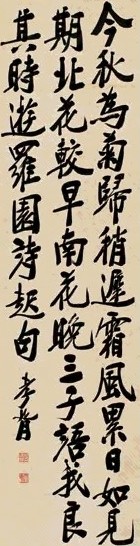 今秋為菊歸稍遲霜風累日如見
期北花較早南花晚三子語我良
其時遊羅園詩起句 孝胥